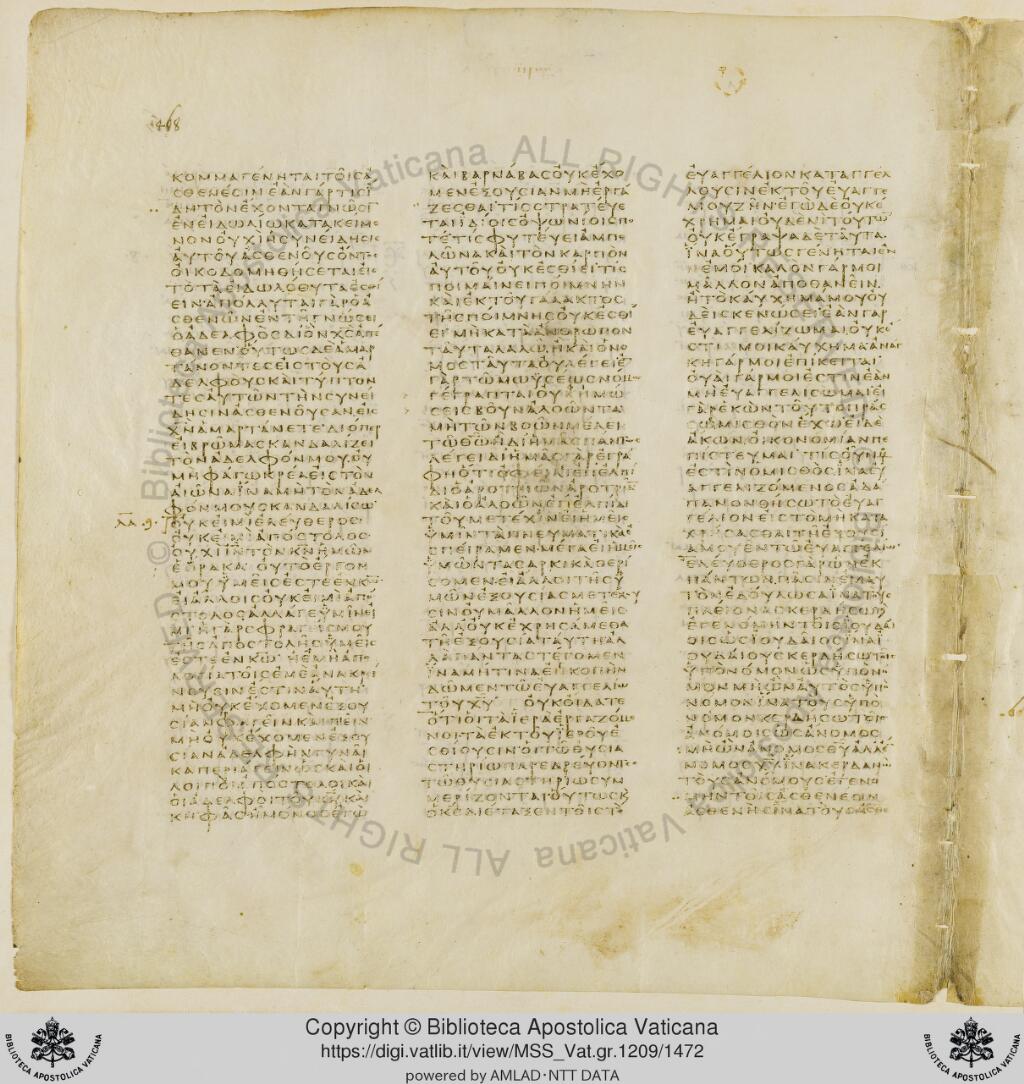 468
ΚΟΜΜΑΓΕΝΗΤΑΙΤΟΙϹΑ
ϹΘΕΝΕϹΙΝΕΑΝΓΑΡΤΙϹΙ
ΔΗΤΟΝΕΧΟΝΤΑΓΝΩϹΙ
ΕΝΕΙΔΩΛΙΩΚΑΤΑΚΕΙΜΕ
ΝΟΝΟΥΧΙΗϹΥΝΕΙΔΗϹΙϹ
ΑΥΤΟΥΑϹΘΕΝΟΥϹΟΝΤΟϹ
ΟΙΚΟΔΟΜΗΘΗϹΕΤΑΙΕΙϹ
ΤΟΤΑΕΙΔΩΛΟΘΥΤΑΕϹΘΙ
ΕΙΝΑΠΟΛΛΥΤΑΙΓΑΡΟΑ
ϹΘΕΝΩΝΕΝΤΗΓΝΩϹΕΙ
ΟΑΔΕΛΦΟϹΔΙΟΝΧϹΑΠΕ
ΘΑΝΕΝΟΥΤΩϹΔΕΑΜΑΡ
ΤΑΝΟΝΤΕϹΕΙϹΤΟΥϹΑ
ΔΕΛΦΟΥϹΚΑΙΤΥΠΤΟΝ
ΤΕϹΑΥΤΩΝΤΗΝϹΥΝΕΙ
ΔΗϹΙΝΑϹΘΕΝΟΥϹΑΝΕΙϹ
ΧΝΑΜΑΡΤΑΝΕΤΕΔΙΟΠΕΡ
ΕΙΒΡΩΜΑϹΚΑΝΔΑΛΙΖΕΙ
ΤΟΝΑΔΕΛΦΟΝΜΟΥΟΥ
ΜΗΦΑΓΩΚΡΕΑΕΙϹΤΟΝ
ΑΙΩΝΑΙΝΑΜΗΤΟΝΑΔΕΛ
ΦΟΝΜΟΥϹΚΑΝΔΑΛΙϹΩ
ΟΥΚΕΙΜΙΕΛΕΥΘΕΡΟϹ
ΟΥΚΕΙΜΙΑΠΟϹΤΟΛΟϹ
ΟΥΧΙΙΝΤΟΝΚΝΗΜΩΝ
ΕΟΡΑΚΑΟΥΤΟΕΡΓΟΝ
ΜΟΥΥΜΕΙϹΕϹΤΕΕΝΚΩ
ΕΙΑΛΛΟΙϹΟΥΚΕΙΜΙΑΠΟ
ϹΤΟΛΟϹΑΛΛΑΓΕΥΜΙΝΕΙ
ΜΙΗΓΑΡϹΦΡΑΓΕΙϹΜΟΥ
ΤΗϹΑΠΟϹΤΟΛΗϹΥΜΕΙϹ
ΕϹΤΕΕΝΚΩΗΕΜΗΑΠΟ
ΛΟΓΙΑΤΟΙϹΕΜΕΑΝΑΚΡΙ
ΝΟΥϹΙΝΕϹΤΙΝΑΥΤΗ
ΜΗΟΥΚΕΧΟΜΕΝΕΞΟΥ
ϹΙΑΝΦΑΓΕΙΝΚΑΙΠΕΙΝ
ΜΗΟΥΚΕΧΟΜΕΝΕΞΟΥ
ϹΙΑΝΑΔΕΛΦΗΝΓΥΝΑΙ
ΚΑΠΕΡΙΑΓΕΙΝΩϹΚΑΙΟΙ
ΛΟΙΠΟΙΑΠΟϹΤΟΛΟΙΚΑΙ
ΟΙΑΔΕΛΦΟΙΤΟΥΚΥΚΑΙ
ΚΗΦΑϹΗΜΟΝΟϹΕΓΩ
ΚΑΙΒΑΡΝΑΒΑϹΟΥΚΕΧΟ
ΜΕΝΕΞΟΥϹΙΑΝΜΗΕΡΓΑ
ΖΕϹΘΑΙΤΙϹϹΤΡΑΤΕΥΕ
ΤΑΙΙΔΙΟΙϹΟΨΩΝΙΟΙϹΠΟ
ΤΕΤΙϹΦΥΤΕΥΕΙΑΜΠΕ
ΛΩΝΑΚΑΙΤΟΝΚΑΡΠΟΝ
ΑΥΤΟΥΟΥΚΕϹΘΙΕΙΤΙϹ
ΠΟΙΜΑΙΝΕΙΠΟΙΜΝΗΝ
ΚΑΙΕΚΤΟΥΓΑΛΑΚΤΟϹ
ΤΗϹΠΟΙΜΝΗϹΟΥΚΕϹΘΙ
ΕΙΜΗΚΑΤΑΑΝΘΡΩΠΟΝ
ΤΑΥΤΑΛΑΛΩΗΚΑΙΟΝΟ
ΜΟϹΤΑΥΤΑΟΥΛΕΓΕΙΕΝ
ΓΑΡΤΩΜΩΥϹΕΩϹΝΟΜΩ
ΓΕΓΡΑΠΤΑΙΟΥΚΗΜΩ
ϹΕΙϹΒΟΥΝΑΛΟΩΝΤΑ
ΜΗΤΩΝΒΟΩΝΜΕΛΕΙ
ΤΩΘΩΗΔΙΗΜΑϹΠΑΝΤΩϹ
ΛΕΓΕΙΔΙΗΜΑϹΓΑΡΕΓΡΑ
ΦΗΟΤΙΟΦΕΙΛΕΙΕΠΕΛΠΙ
ΔΙΟΑΡΟΤΡΙΩΝΑΡΟΤΡΙΑΝ
ΚΑΙΟΑΛΟΩΝΕΠΕΛΠΙΔΙ
ΤΟΥΜΕΤΕΧΙΝΕΙΗΜΕΙϹ
ΥΜΙΝΤΑΠΝΕΥΜΑΤΙΚΑΕ
ϹΠΕΙΡΑΜΕΝΜΕΓΑΕΙΗΜΕΙϹ
ΥΜΩΝΤΑϹΑΡΚΙΚΑΘΕΡΙ
ϹΟΜΕΝΕΙΑΛΛΟΙΤΗϹΥ
ΜΩΝΕΞΟΥϹΙΑϹΜΕΤΕΧΟΥ
ϹΙΝΟΥΜΑΛΛΟΝΗΜΕΙϹ
ΑΛΛΟΥΚΕΧΡΗϹΑΜΕΘΑ
ΤΗΕΞΟΥϹΙΑΤΑΥΤΗΑΛ
ΛΑΠΑΝΤΑϹΤΕΓΟΜΕΝ
ΙΝΑΜΗΤΙΝΑΕΝΚΟΠΗΝ
ΔΩΜΕΝΤΩΕΥΑΓΓΕΛΙΩ
ΤΟΥΧΥ ΟΥΚΟΙΔΑΤΕ
ΟΤΙΟΙΤΑΙΕΡΑΕΡΓΑΖΟΜΕ
ΝΟΙΤΑΕΚΤΟΥΙΕΡΟΥΕ
ϹΘΙΟΥϹΙΝΟΙΤΩΘΥϹΙΑ
ϹΤΗΡΙΩΠΑΡΕΔΡΕΥΟΝΤΕϹ
ΤΩΘΥϹΙΑϹΤΗΡΙΩϹΥΝ
ΜΕΡΙΖΟΝΤΑΙΟΥΤΩϹΚ
ΟΚϹΔΙΕΤΑΞΕΝΤΟΙϹΤΟ
ΕΥΑΓΓΕΛΙΟΝΚΑΤΑΓΓΕΛ
ΛΟΥϹΙΝΕΚΤΟΥΕΥΑΓΓΕ
ΛΙΟΥΖΗΝΕΓΩΔΕΟΥΚΕ
ΧΡΗΜΑΙΟΥΔΕΝΙΤΟΥΤΩΝ
ΟΥΚΕΓΡΑΨΑΔΕΤΑΥΤΑ
ΙΝΑΟΥΤΩϹΓΕΝΗΤΑΙΕΝ
ΕΜΟΙΚΑΛΟΝΓΑΡΜΟΙ
ΜΑΛΛΟΝΑΠΟΘΑΝΕΙΝ
ΗΤΟΚΑΥΧΗΜΑΜΟΥΟΥ
ΔΕΙϹΚΕΝΩϹΕΙΕΑΝΓΑΡ
ΕΥΑΓΓΕΛΙΖΩΜΑΙΟΥΚΕ
ϹΤΙΜΟΙΚΑΥΧΗΜΑΑΝΑΓ
ΚΗΓΑΡΜΟΙΕΠΙΚΕΙΤΑΙ
ΟΥΑΙΓΑΡΜΟΙΕϹΤΙΝΕΑΝ
ΜΗΕΥΑΓΓΕΛΙϹΩΜΑΙΕΙ
ΓΑΡΕΚΩΝΤΟΥΤΟΠΡΑϹ
ϹΩΜΙϹΘΟΝΕΧΩΕΙΔΕ
ΑΚΩΝΟΙΚΟΝΟΜΙΑΝΠΕ
ΠΙϹΤΕΥΜΑΙΤΙϹΟΥΝΜΟΥ
ΕϹΤΙΝΟΜΙϹΘΟϹΙΝΑΕΥ
ΑΓΓΕΛΙΖΟΜΕΝΟϹΑΔΑ
ΠΑΝΟΝΘΗϹΩΤΟΕΥΑΓ
ΓΕΛΙΟΝΕΙϹΤΟΜΗΚΑΤΑ
ΧΡΗϹΑϹΘΑΙΤΗΕΞΟΥϹΙ
ΑΜΟΥΕΝΤΩΕΥΑΓΓΕΛΙΩ
ΕΛΕΥΘΕΡΟϹΓΑΡΩΝΕΚ
ΠΑΝΤΩΝΠΑϹΙΝΕΜΑΥ
ΤΟΝΕΔΟΥΛΩϹΑΙΝΑΤΟΥϹ
ΠΛΕΙΟΝΑϹΚΕΡΔΗϹΩΚΑΙ
ΕΓΕΝΟΜΗΝΤΟΙϹΙΟΥΔΑΙ
ΟΙϹΩϹΙΟΥΔΑΙΟϹΙΝΑΙ
ΟΥΔΑΙΟΥϹΚΕΡΔΗϹΩΤΟΙϹ
ΥΠΟΝΟΜΟΝΩϹΥΠΟΝΟ
ΜΟΝΜΗΩΝΑΥΤΟϹΥΠΟ
ΝΟΜΟΝΙΝΑΤΟΥϹΥΠΟ
ΝΟΜΟΝΚΕΡΔΗϹΩΤΟΙϹ
ΑΝΟΜΟΙϹΩϹΑΝΟΜΟϹ
ΜΗΩΝΑΝΟΜΟϹΘΥΑΛΛΕΝ
ΝΟΜΟϹΧΥΙΝΑΚΕΡΔΑΝΩ
ΤΟΥϹΑΝΟΜΟΥϹΕΓΕΝΟ
ΜΗΝΤΟΙϹΑϹΘΕΝΕϹΙΝ
ΑϹΘΕΝΗϹΙΝΑΤΟΥϹΑϹΘΕ
Copyright © Biblioteca Apostolica Vaticana
https://digi.vatlib.it/view/MSS_Vat.gr.1209/1472
powered by AMLAD·NTT DATA
BIBLIOTECA APOSTOLICA VATICANA
BIBLIOTECA APOSTOLICA VATICANA